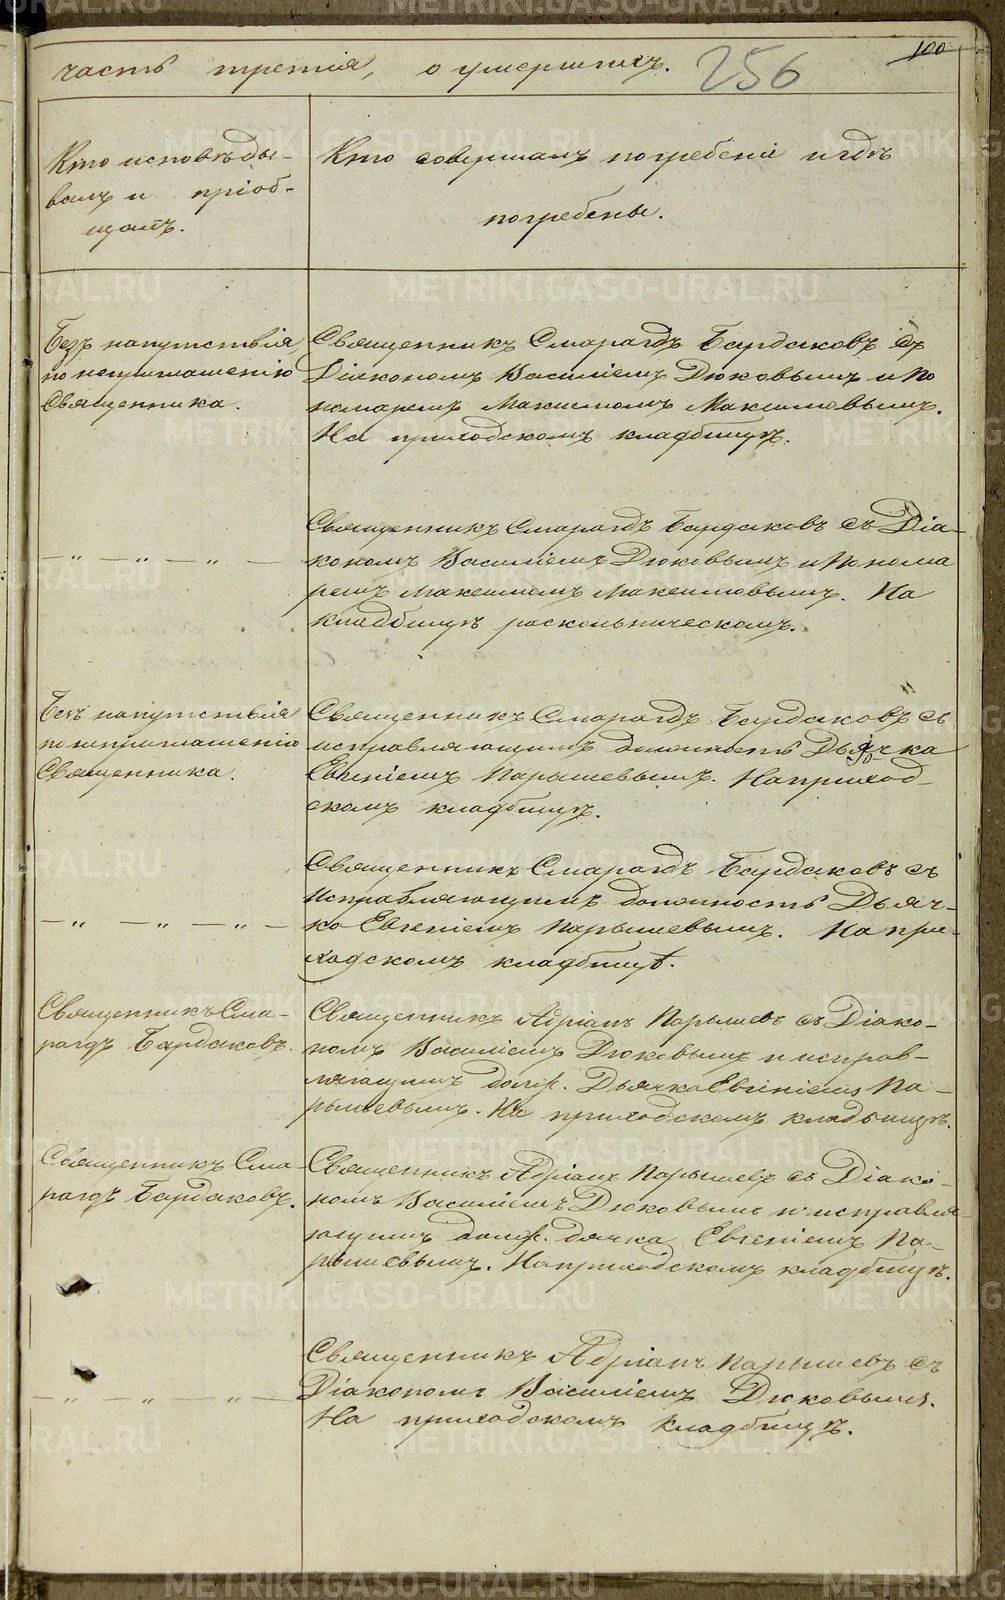 100
часть третія, о умершихъ. 256
Кто исповѣды-
валъ и пріоб-
щалъ.
Кто совершалъ погребеніе и гдѣ
погребены.
Безъ напутствія
по неприглашенію
Священника.
Священникъ Смарагдъ Бардаковъ съ
Діакономъ Василіемъ Дюковымъ и По
номаремъ Максимомъ Максимовымъ.
На приходскомъ кладбищѣ.
— „ — „ — „ —
Священникъ Смарагдъ Бардаковъ съ Діа-
кономъ Василіемъ Дюковымъ и Понома
ремъ Максимомъ Максимовымъ. На
кладбищѣ раскольническомъ.
Безъ напутствія
по неприглашенію
Священника.
Священникъ Смарагдъ Бардаковъ съ
исправляющимъ должность Дьячка
Евгеніемъ Парышевымъ. На приход-
скомъ кладбищѣ.
— „ — „ — „ —
Священникъ Смарагдъ Бардаковъ съ
Исправляющимъ должность Дьяч-
ка Евгеніемъ Парышевымъ. На при-
ходскомъ кладбищѣ.
Священникъ Сма-
рагдъ Бардаковъ.
Священникъ Адріанъ Парышевъ съ Діако-
номъ Василіемъ Дюковымъ и исправ-
ляющимъ долж. Дьячка Евгеніемъ Па-
рышевымъ. На приходскомъ кладбищѣ.
Священникъ Сма-
рагдъ Бардаковъ.
Священникъ Адріанъ Парышевъ съ Діако-
номъ Василіемъ Дюковымъ и исправля-
ющимъ долж. дячка Евгеніемъ Па-
рышевымъ. На приходскомъ кладбищѣ.
— „ — „ — „ —
Священникъ Адріанъ Парышевъ съ
Діакономъ Василіемъ Дюковымъ.
На приходскомъ кладбищѣ.
METRIKI.GASO-URAL.RU